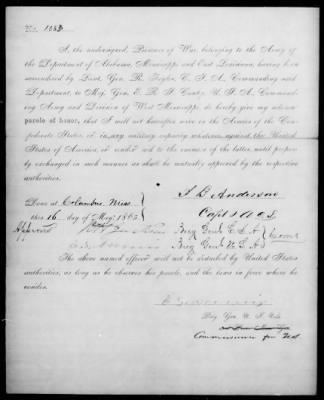 No. 1083
I, the undersigned, Prisoner of War, belonging to the Army of
the Department of Alabama, Mississippi and East Louisiana, having been
surrendered by Lieut. Gen. R. Taylor, C. S. A., Commanding said
Department, to Maj. Gen. E. R. S. Canby, U. S. A., Command-
ing Army and Division of West Mississippi, do hereby give my solemn
parole of honor, that I will not hereafter serve in the Armies of the Con-
federate States, or in any military capacity whatever, against the United
States of America, or render aid to the enemies of the latter, until proper-
ly exchanged in such manner as shall be mutually approved by the respective
authorities.
J B Anderson
Done at Columbus Miss
Capt & A C S
this 16 day of May 1865
Approved
Brig Genl C. S. A
Brig Genl U. S. A
Coms
The above named officer will not be disturbed by United States
authorities, as long as he observes his parole, and the laws in force where he
resides.
Brig. Gen. U. S. Vols
Commissioner for U.S.